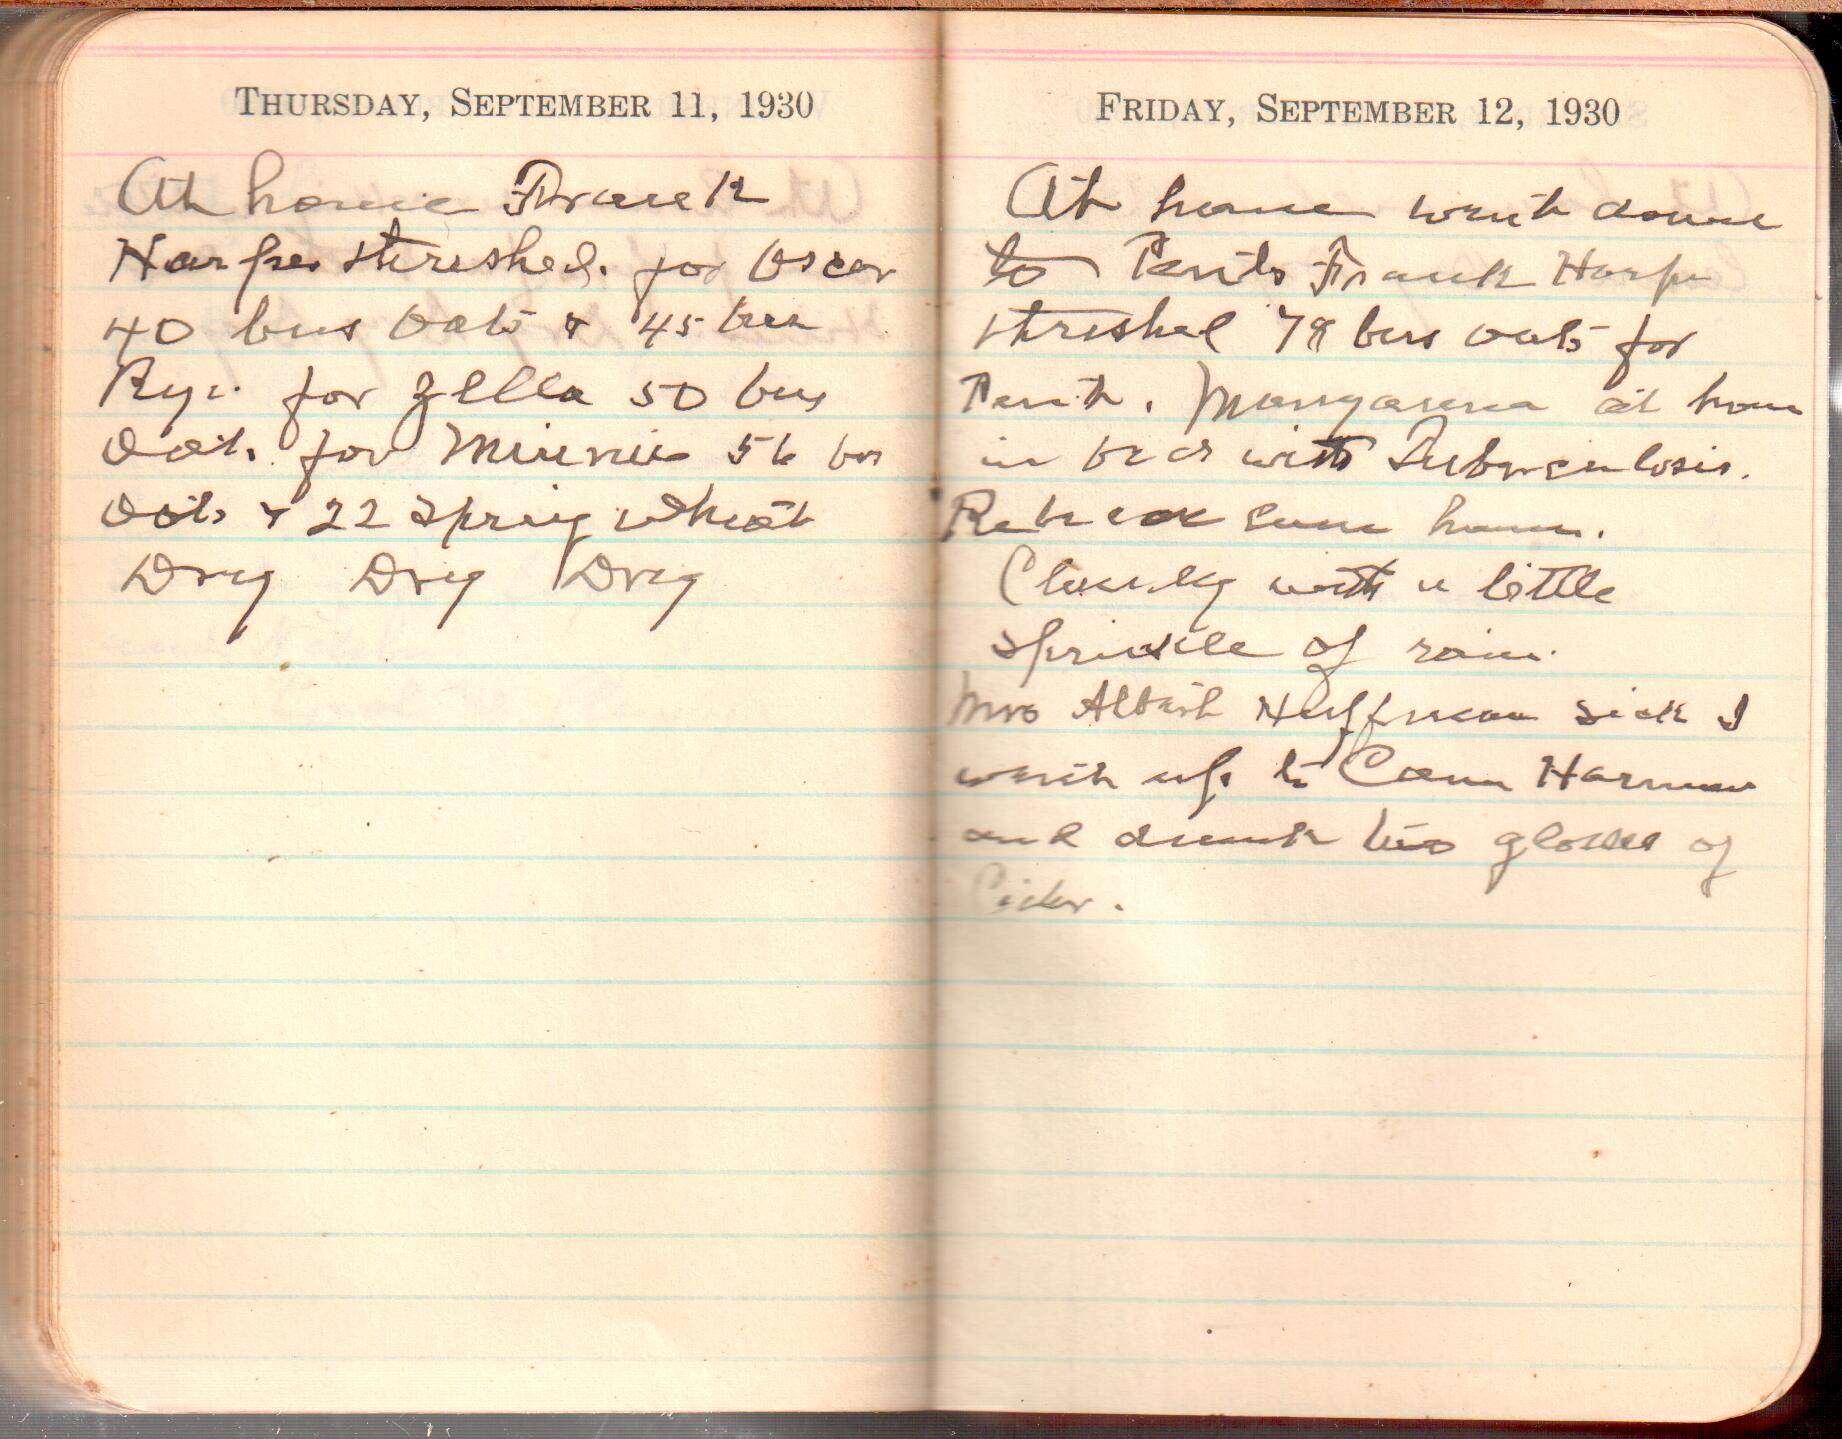 THURSDAY, SEPTEMBER 11, 1930
At home Frank
Harper threshed. for Oscar
40 bus Oats & 45 bus
Rye. for Zella 50 bus
Oats. for Minnie 56 bus
Oats & 22 Spring wheat
Dry Dry Dry
FRIDAY, SEPTEMBER 12, 1930
At home went down
to Frank Harper
threshed 78 bus oats for
at home
in bed with Tuberculosis.
came home.
Cloudy with a little
sprinkle of rain.
Mrs Albert Huffman sick I
went up to Harman
and drank two glasses of
Cider.